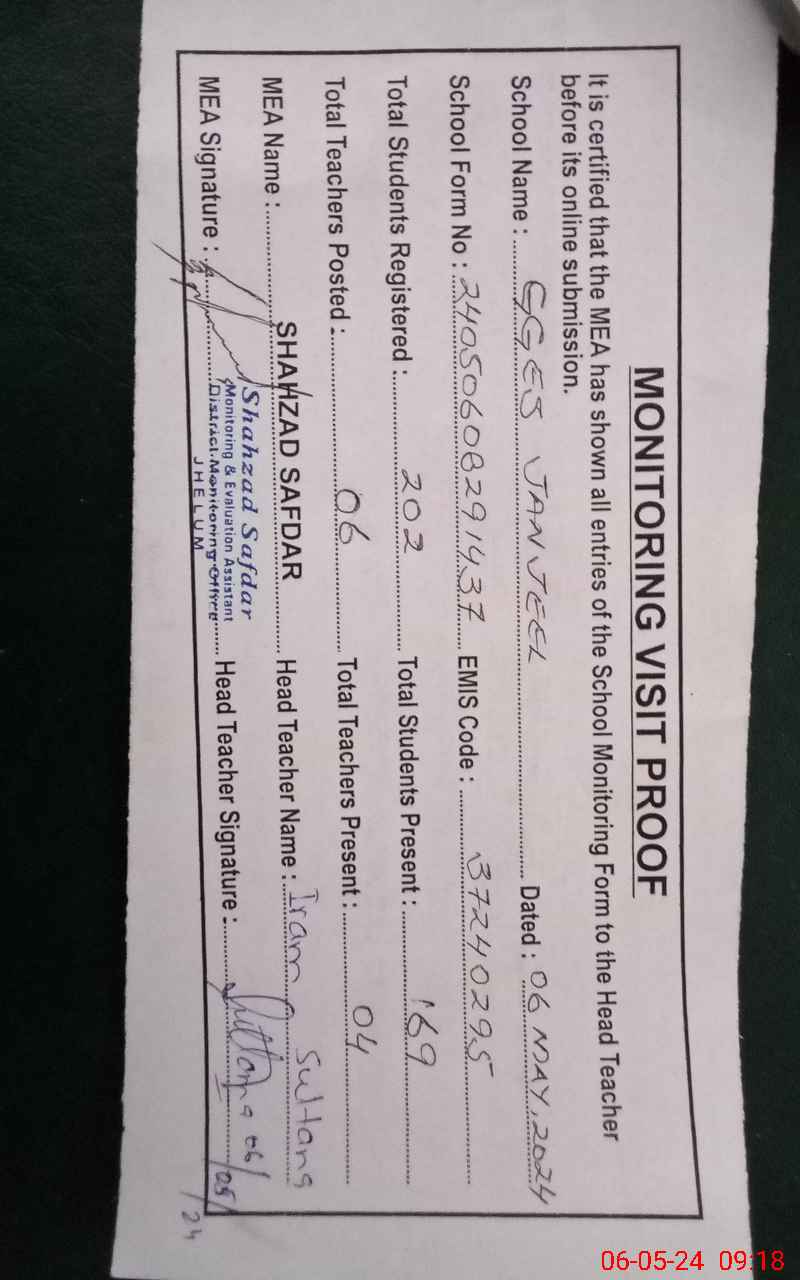 MONITORING VISIT PROOF
It is certified that the MEA has shown all entries of the School Monitoring Form to the Head Teacher
before its online submission.
School Name : GGES JANJEEL Dated : 06 MAY, 2024
School Form No : 24050608291437 EMIS Code : 37240295
Total Students Registered : 202 Total Students Present : 169
Total Teachers Posted : 06 Total Teachers Present : 04
MEA Name : SHAHZAD SAFDAR Head Teacher Name : Iram Sultana
MEA Signature : Head Teacher Signature : Sultana 06/05/24
Shahzad Safdar
Monitoring & Evaluation Assistant
District Monitoring Office
JHELUM
06-05-24 09:18